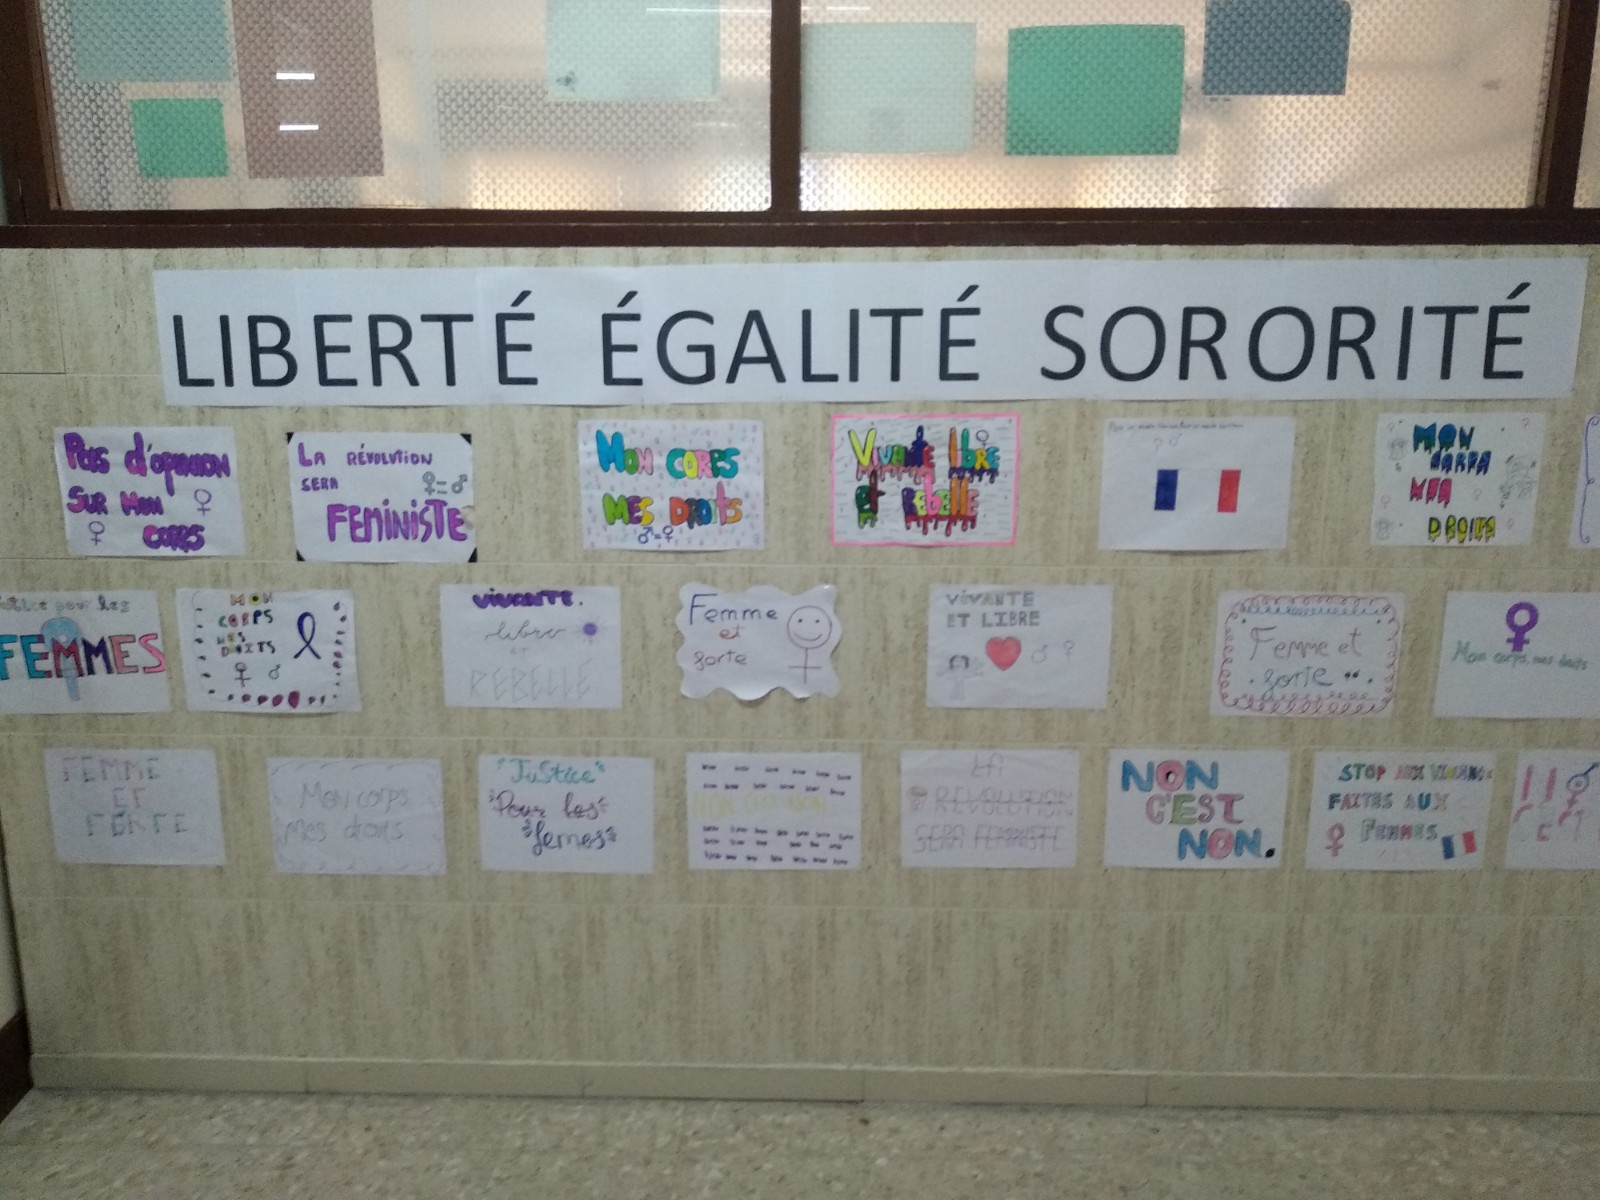 LIBERTÉ ÉGALITÉ SORORITÉ
Pas d'opinion
Sur mon
corps
LA RÉVOLUTION
SERA
FEMINISTE
MON CORPS
MES DROITS
Vivante libre
et rebelle
MON
DROITS
pour les
FEMMES
MON
CORPS
MES
DROITS
VIVANTE.
libre
ET
REBELLE
Femme
et
forte
VIVANTE
ET LIBRE
Femme et
forte
Mon corps, mes droits
FEMME
ET
FORTE
Mon corps
Mes droits
"Justice"
Pour les
femes
LA
REVOLUTION
SERA FEMINISTE
NON
C'EST
NON.
STOP AUX
FAITES AUX
FEMMES